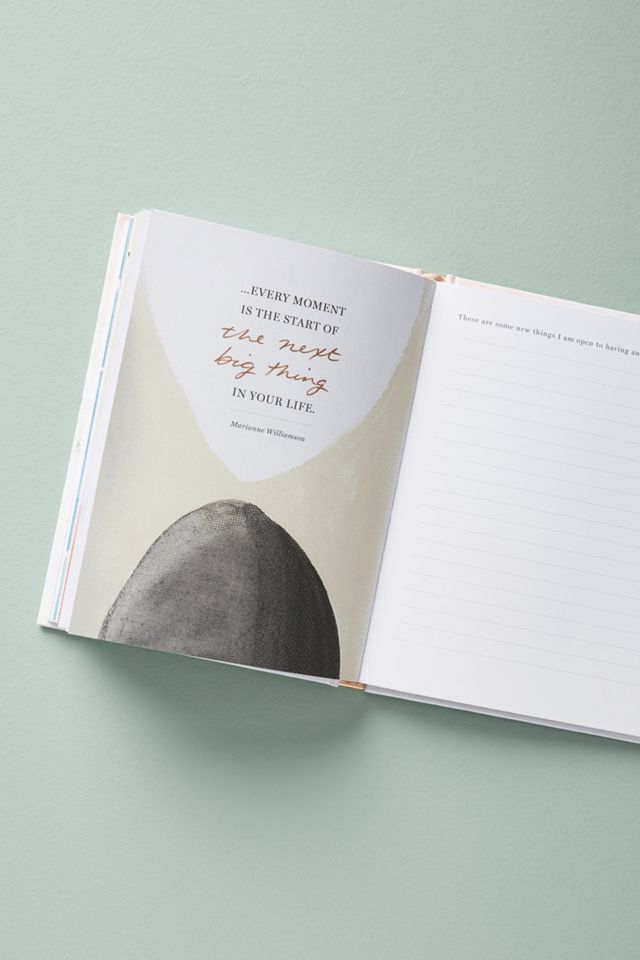 ...EVERY MOMENT
IS THE START OF
the next
big thing
IN YOUR LIFE.
Marianne Williamson
These are some new things I am open to having an